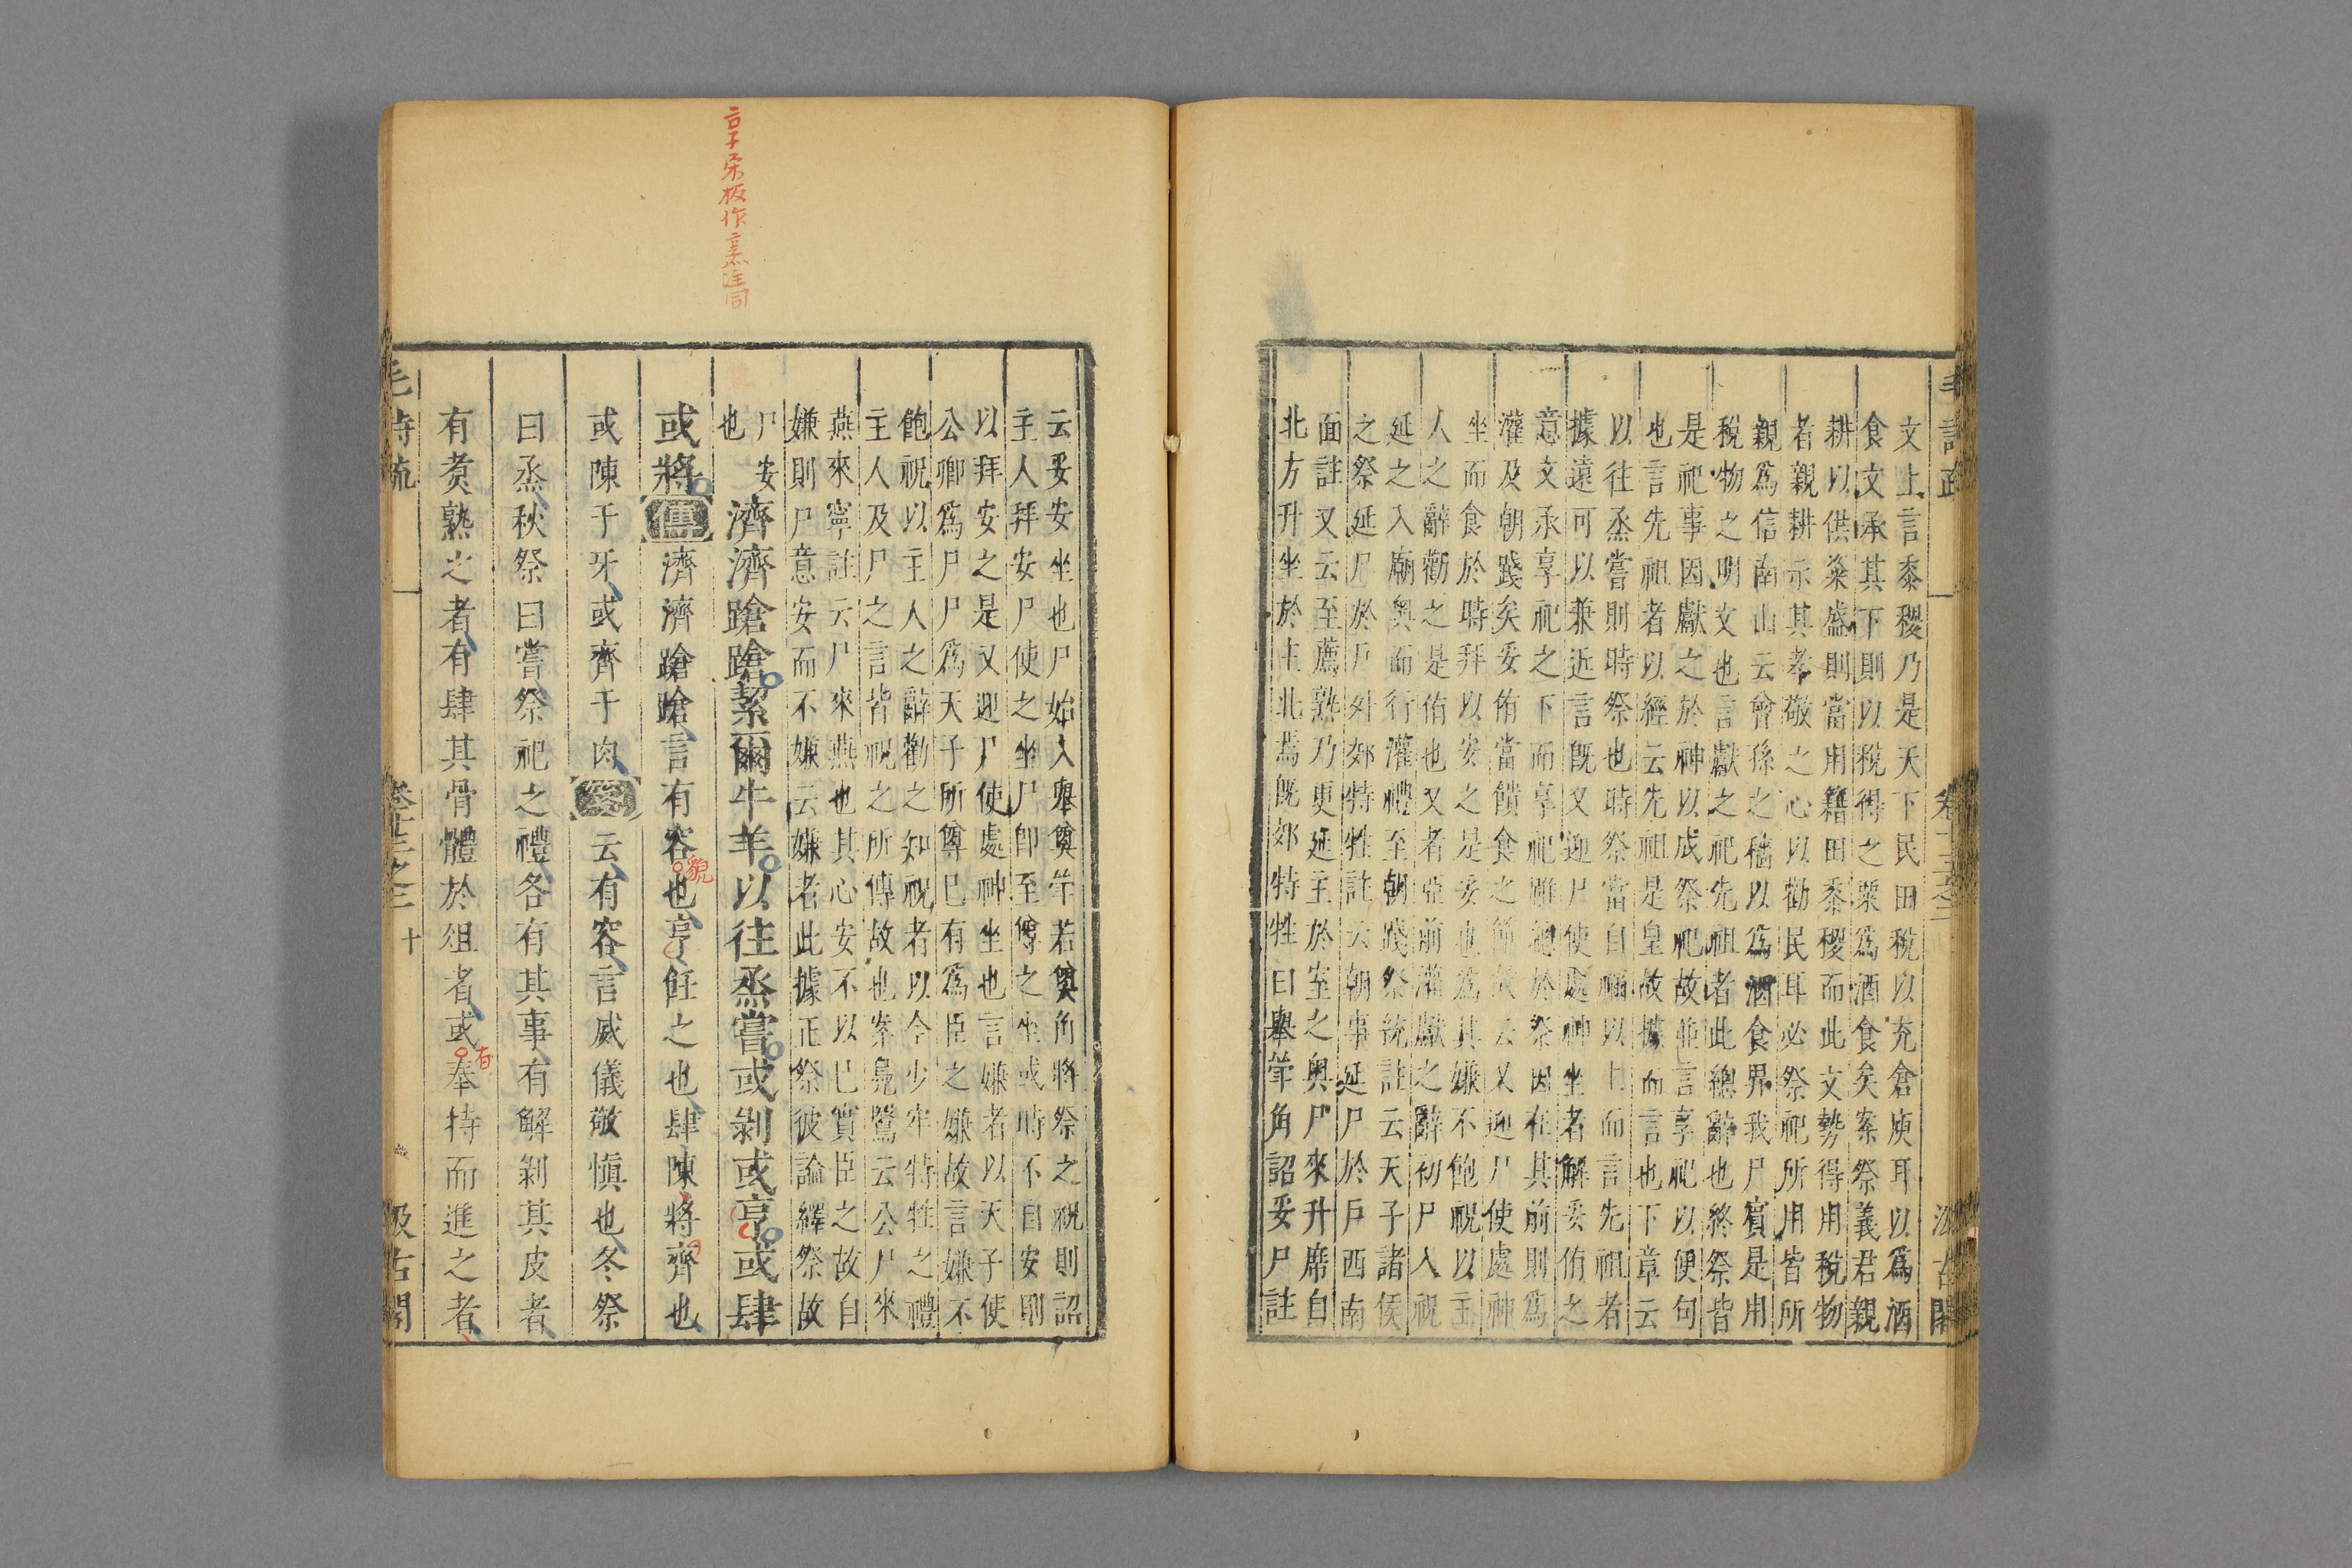 毛詩疏
卷十三之二
汲古閣
文上言黍稷乃是天下民田稅以充倉庾耳以爲酒
食文承其下則以稅得之粟爲酒食矣案祭義君親
耕以供粢盛則當用籍田黍稷而此文勢得用稅物
者親耕示其孝敬之心以勸民耳必祭祀所用皆所
親爲信南山云曾孫之穡以爲酒食畀我尸賓是用
稅物之明文也言獻之祀先祖者此總辭也終祭皆
是祀事因獻之於神以成祭祀故並言享祀以便句
也言先祖者以經云先祖是皇故據而言也下章云
以往烝嘗則時祭也時祭當自禰以上而言先祖者
據遠可以兼近言旣又迎尸使處神坐者解妥侑之
意文承享祀之下而享祀雖總於祭因在其前則爲
灌及朝踐矣妥侑當饋食之節故云又迎尸使處神
坐而食於時拜以安之是妥也爲其嫌不飽祝以主
人之辭勸之是侑也又者亞前灌獻之辭初尸入祝
延之入廟奧而行灌禮至朝踐祭統註云天子諸侯
之祭延尸於戶外郊特牲註云朝事延尸於戶西南
面註又云至薦熟乃更延主於室之奧尸來升席自
北方升坐於主北焉旣郊特牲曰舉斝角詔妥尸註
云妥安坐也尸始入舉奠斝若奠角將祭之祝則詔
主人拜安尸使之坐尸卽至尊之坐或時不自安則
以拜安之是又迎尸使處神坐也言嫌者以天子使
公卿爲尸尸爲天子所尊巳有爲臣之嫌故言嫌不
飽祝以主人之辭勸之知祝者以今少牢特牲之禮
主人及尸之言皆祝之所傳故也案鳧鷖云公尸來
燕來寧註云尸來燕也其心安不以巳實臣之故自
嫌則尸意安而不嫌云嫌者此據正祭彼論繹祭故
尸安
也
濟濟蹌蹌絜爾牛羊以往烝嘗或剝或亨或肆
或將傳濟濟蹌蹌言有容也亨飪之也肆陳將齊也
或陳于牙或齊于肉箋云有容言威儀敬愼也冬祭
曰烝秋祭曰嘗祭祀之禮各有其事有解剝其皮者
有煑熟之者有肆其骨體於俎者或奉持而進之者
毛詩疏
卷十三之二
十
汲古閣
亨宋板作烹注同
貌
有